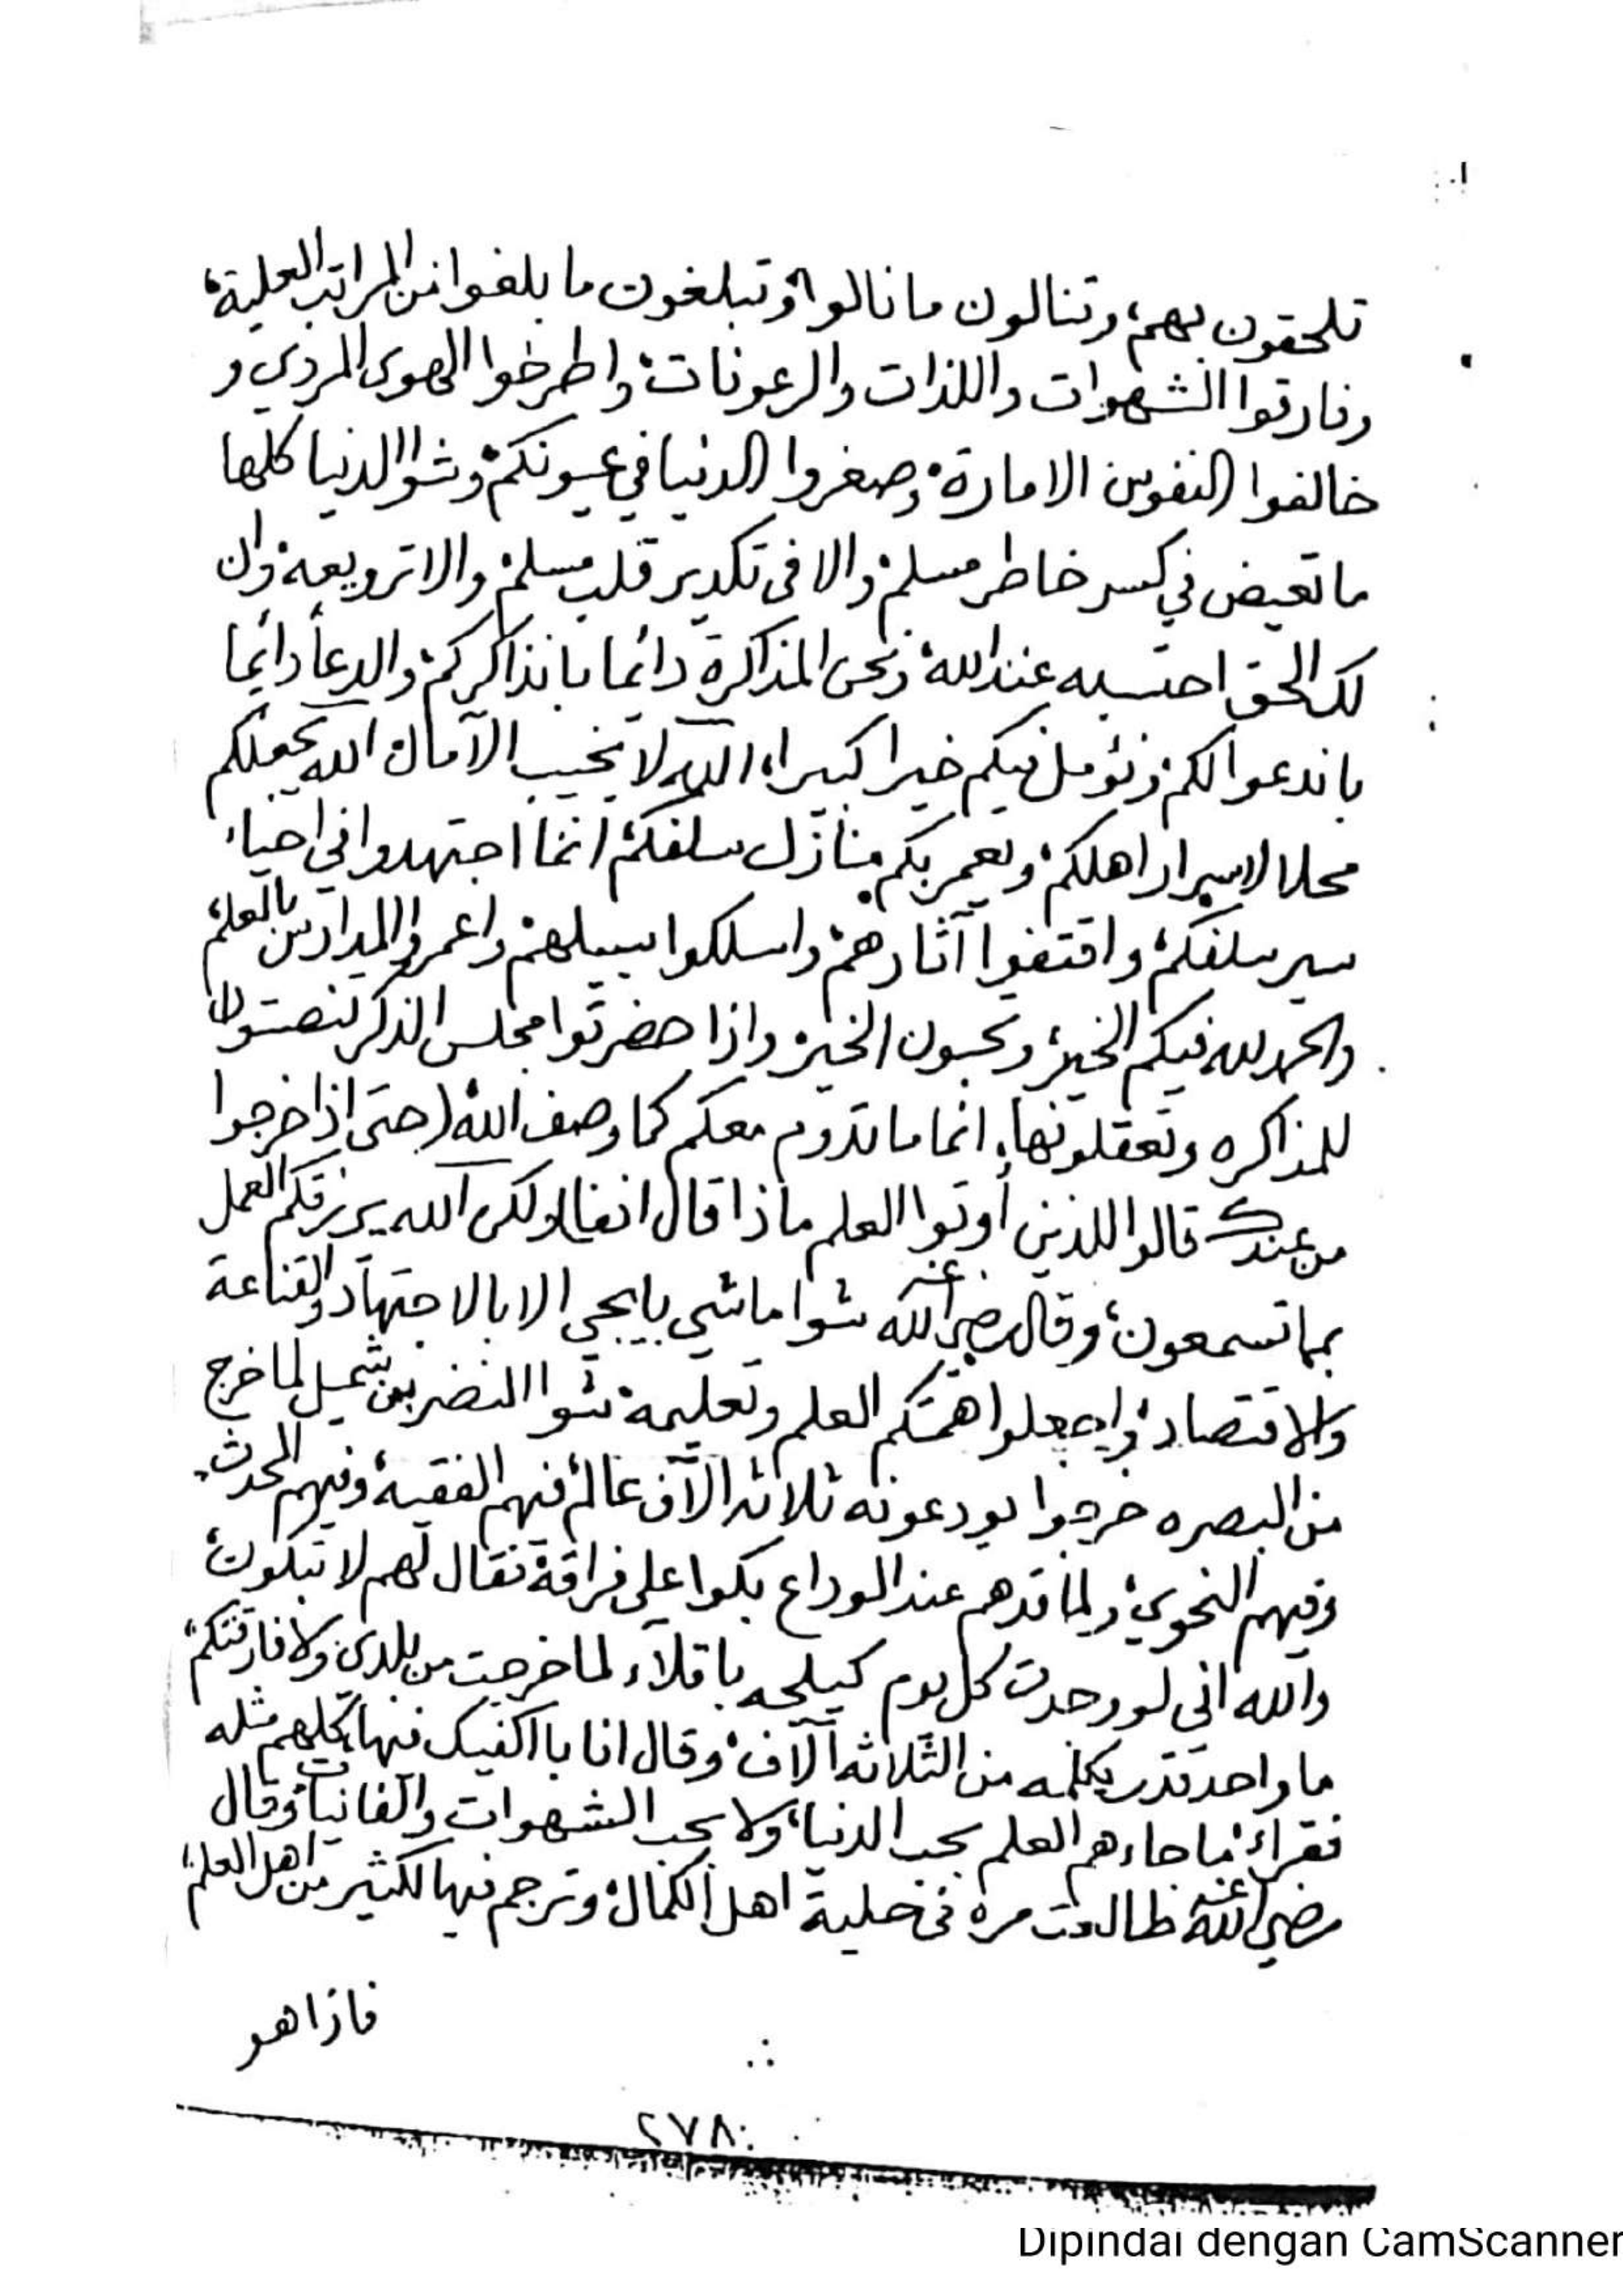 تلحقون بهم، وتنالون ما نالوا، وتبلغون ما بلغوا من المراتب العلية،
وفارقوا الشهوات واللذات والرعونات، واطرخوا الهوى المردي و
خالفوا النفوس الامارة، وصغروا الدنيا في عيونكم، وشوا الدنيا كلها
ما تعيض في كسر خاطر مسلم، والا في تكدير قلب مسلم، والا ترويعه، وان
لك الحق احتسبه عند الله، ونحن المذاكرة دائما بانذاكركم، والدعأ دائما
باندعوا لكم، ونؤمل فيكم خيرا كبيرا، الله لا يخيب الآمال الله يجعلكم
محلا لاسرار اهلكم، ويعمر بكم منازل سلفكم، انما اجتهدوا في احياء
سير سلفكم، واقتفوا آثارهم، واسلكوا سبيلهم، واعمروا المدارس بالعلم،
والحمد لله فيكم الخير، وتحبون الخير، واذا حضرتوا مجلس الذكر تنصتون
للمذاكره وتعقلونها، انما ما تدوم معكم كما وصف الله (حتى اذا خرجوا
من عندك قالوا للذين أوتوا العلم ماذا قال انفا) ولكن الله يرزقكم العمل
بما تسمعون، وقال رضي الله عنه شوا ما شي بايجي الا بالاجتهاد والقناعة
والاقتصاد، واجعلوا همتكم العلم وتعليمه، شوا النضر بن شميل لما خرج
من البصره خرجوا يودعونه ثلاثه الآف عالم، فيهم الفقيه، وفيهم المحدث،
وفيهم النحوي، ولما قدهم عند الوداع بكوا على فراقه، فقال لهم لا تبكون،
والله اني لو وجدت كل يوم كيلجه باقلاء لما خرجت من بلدي، ولا فارقتكم،
ما واحد قدر يكلمه من الثلاثه آلاف، وقال انا بااكفيك فيها، كلهم مثله
فقراء، ما جاءهم العلم بحب الدنيا، ولا بحب الشهوات والفانيات، وقال
رضي الله عنه طالعت مره في حلية اهل الكمال، وترجم فيها لكثير من اهل العلم،
فاذا هو
٢٧٨
Dipindai dengan CamScanner